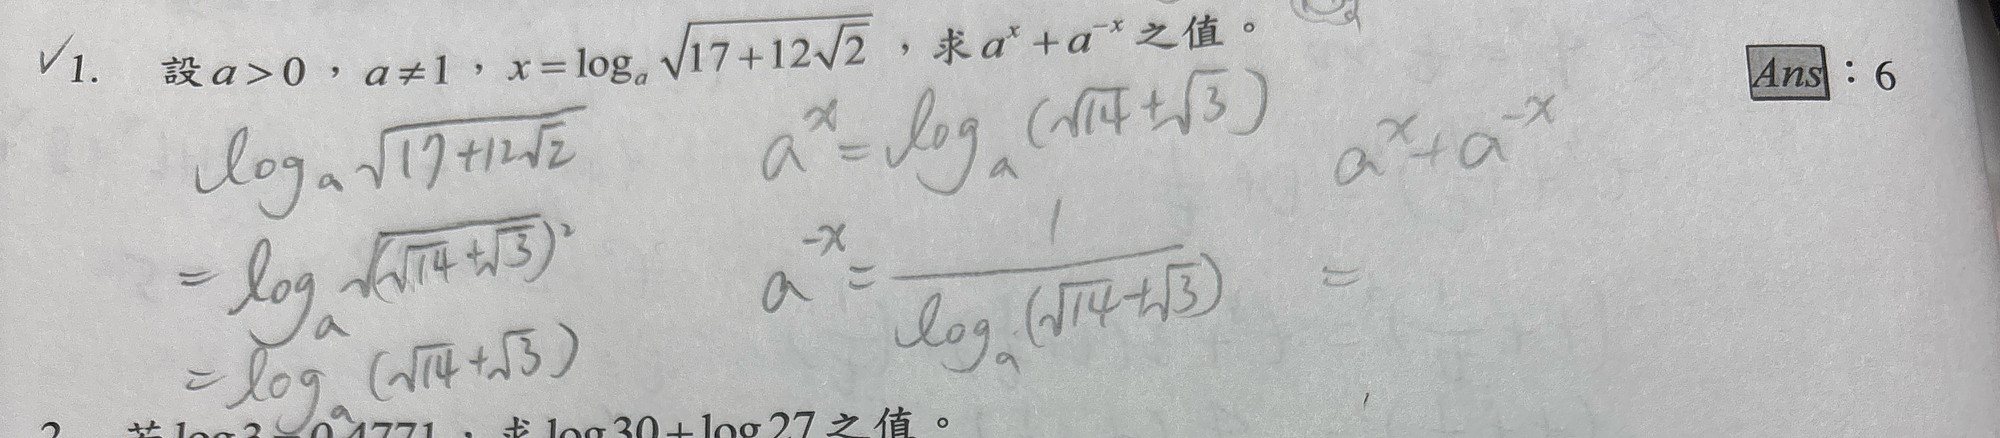 ✓1. 設 a>0，a≠1，x=logₐ√(17+12√2)，求 aˣ+a⁻ˣ 之值。 Ans：6
logₐ√(17+12√2)
=logₐ√(√14+√3)²
=logₐ(√14+√3)
aˣ=logₐ(√14+√3)
a⁻ˣ=1/logₐ(√14+√3)
aˣ+a⁻ˣ
=
2. 若 log3=0.4771，求 log30+log27 之值。